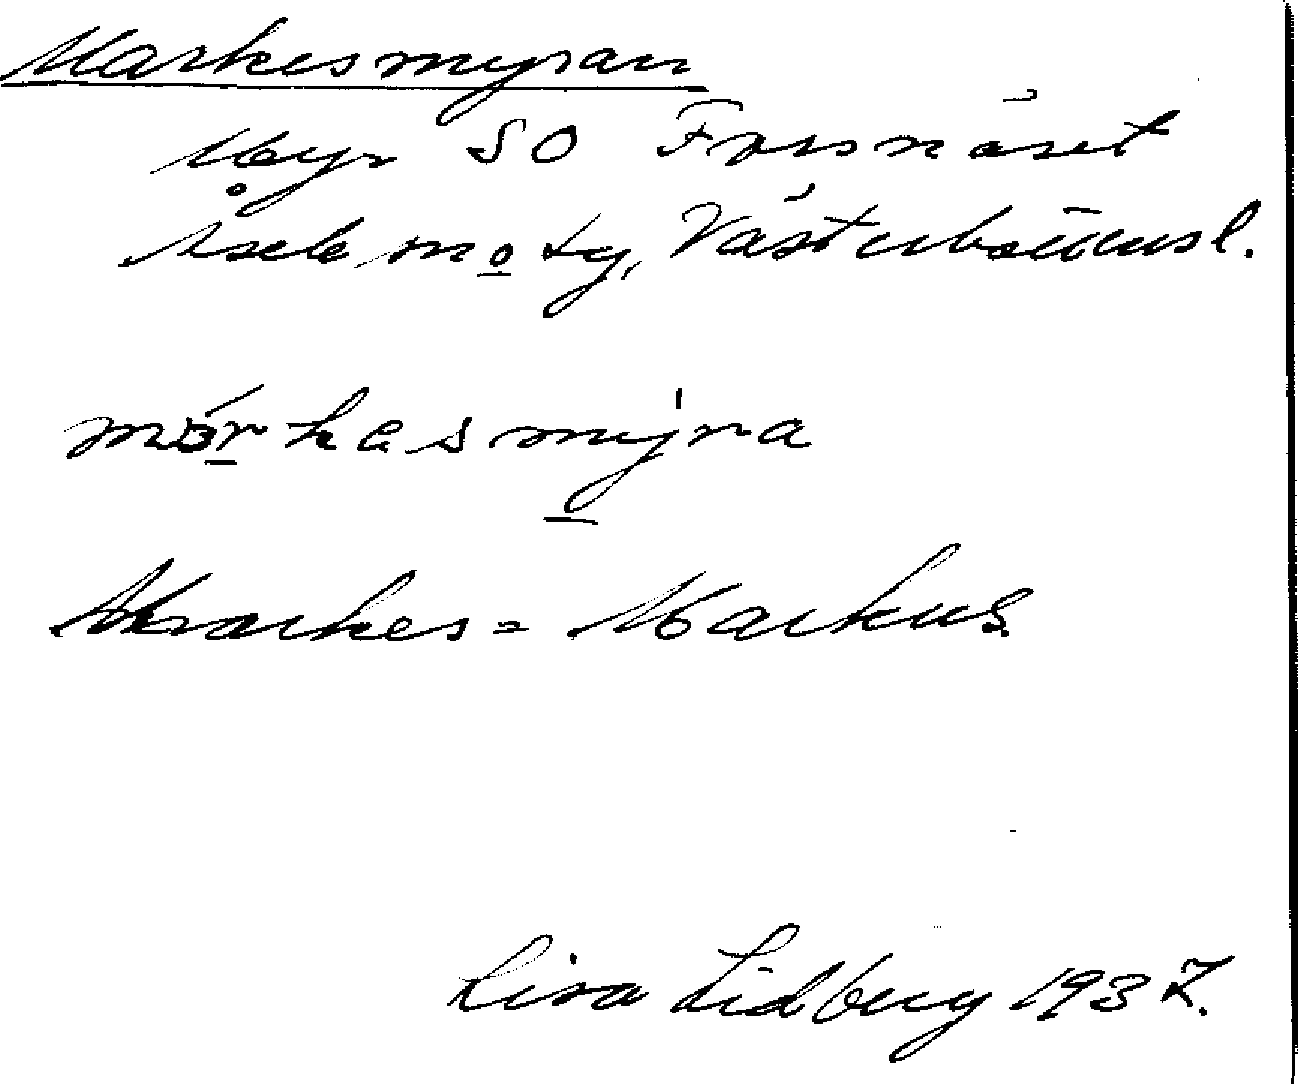 Markesmyran
Myr SO Forsnäset
Åsele m o ty, Västerbottensl.
mörkasmyra
Markes = Markus.
Lisa Lidberg 1937.